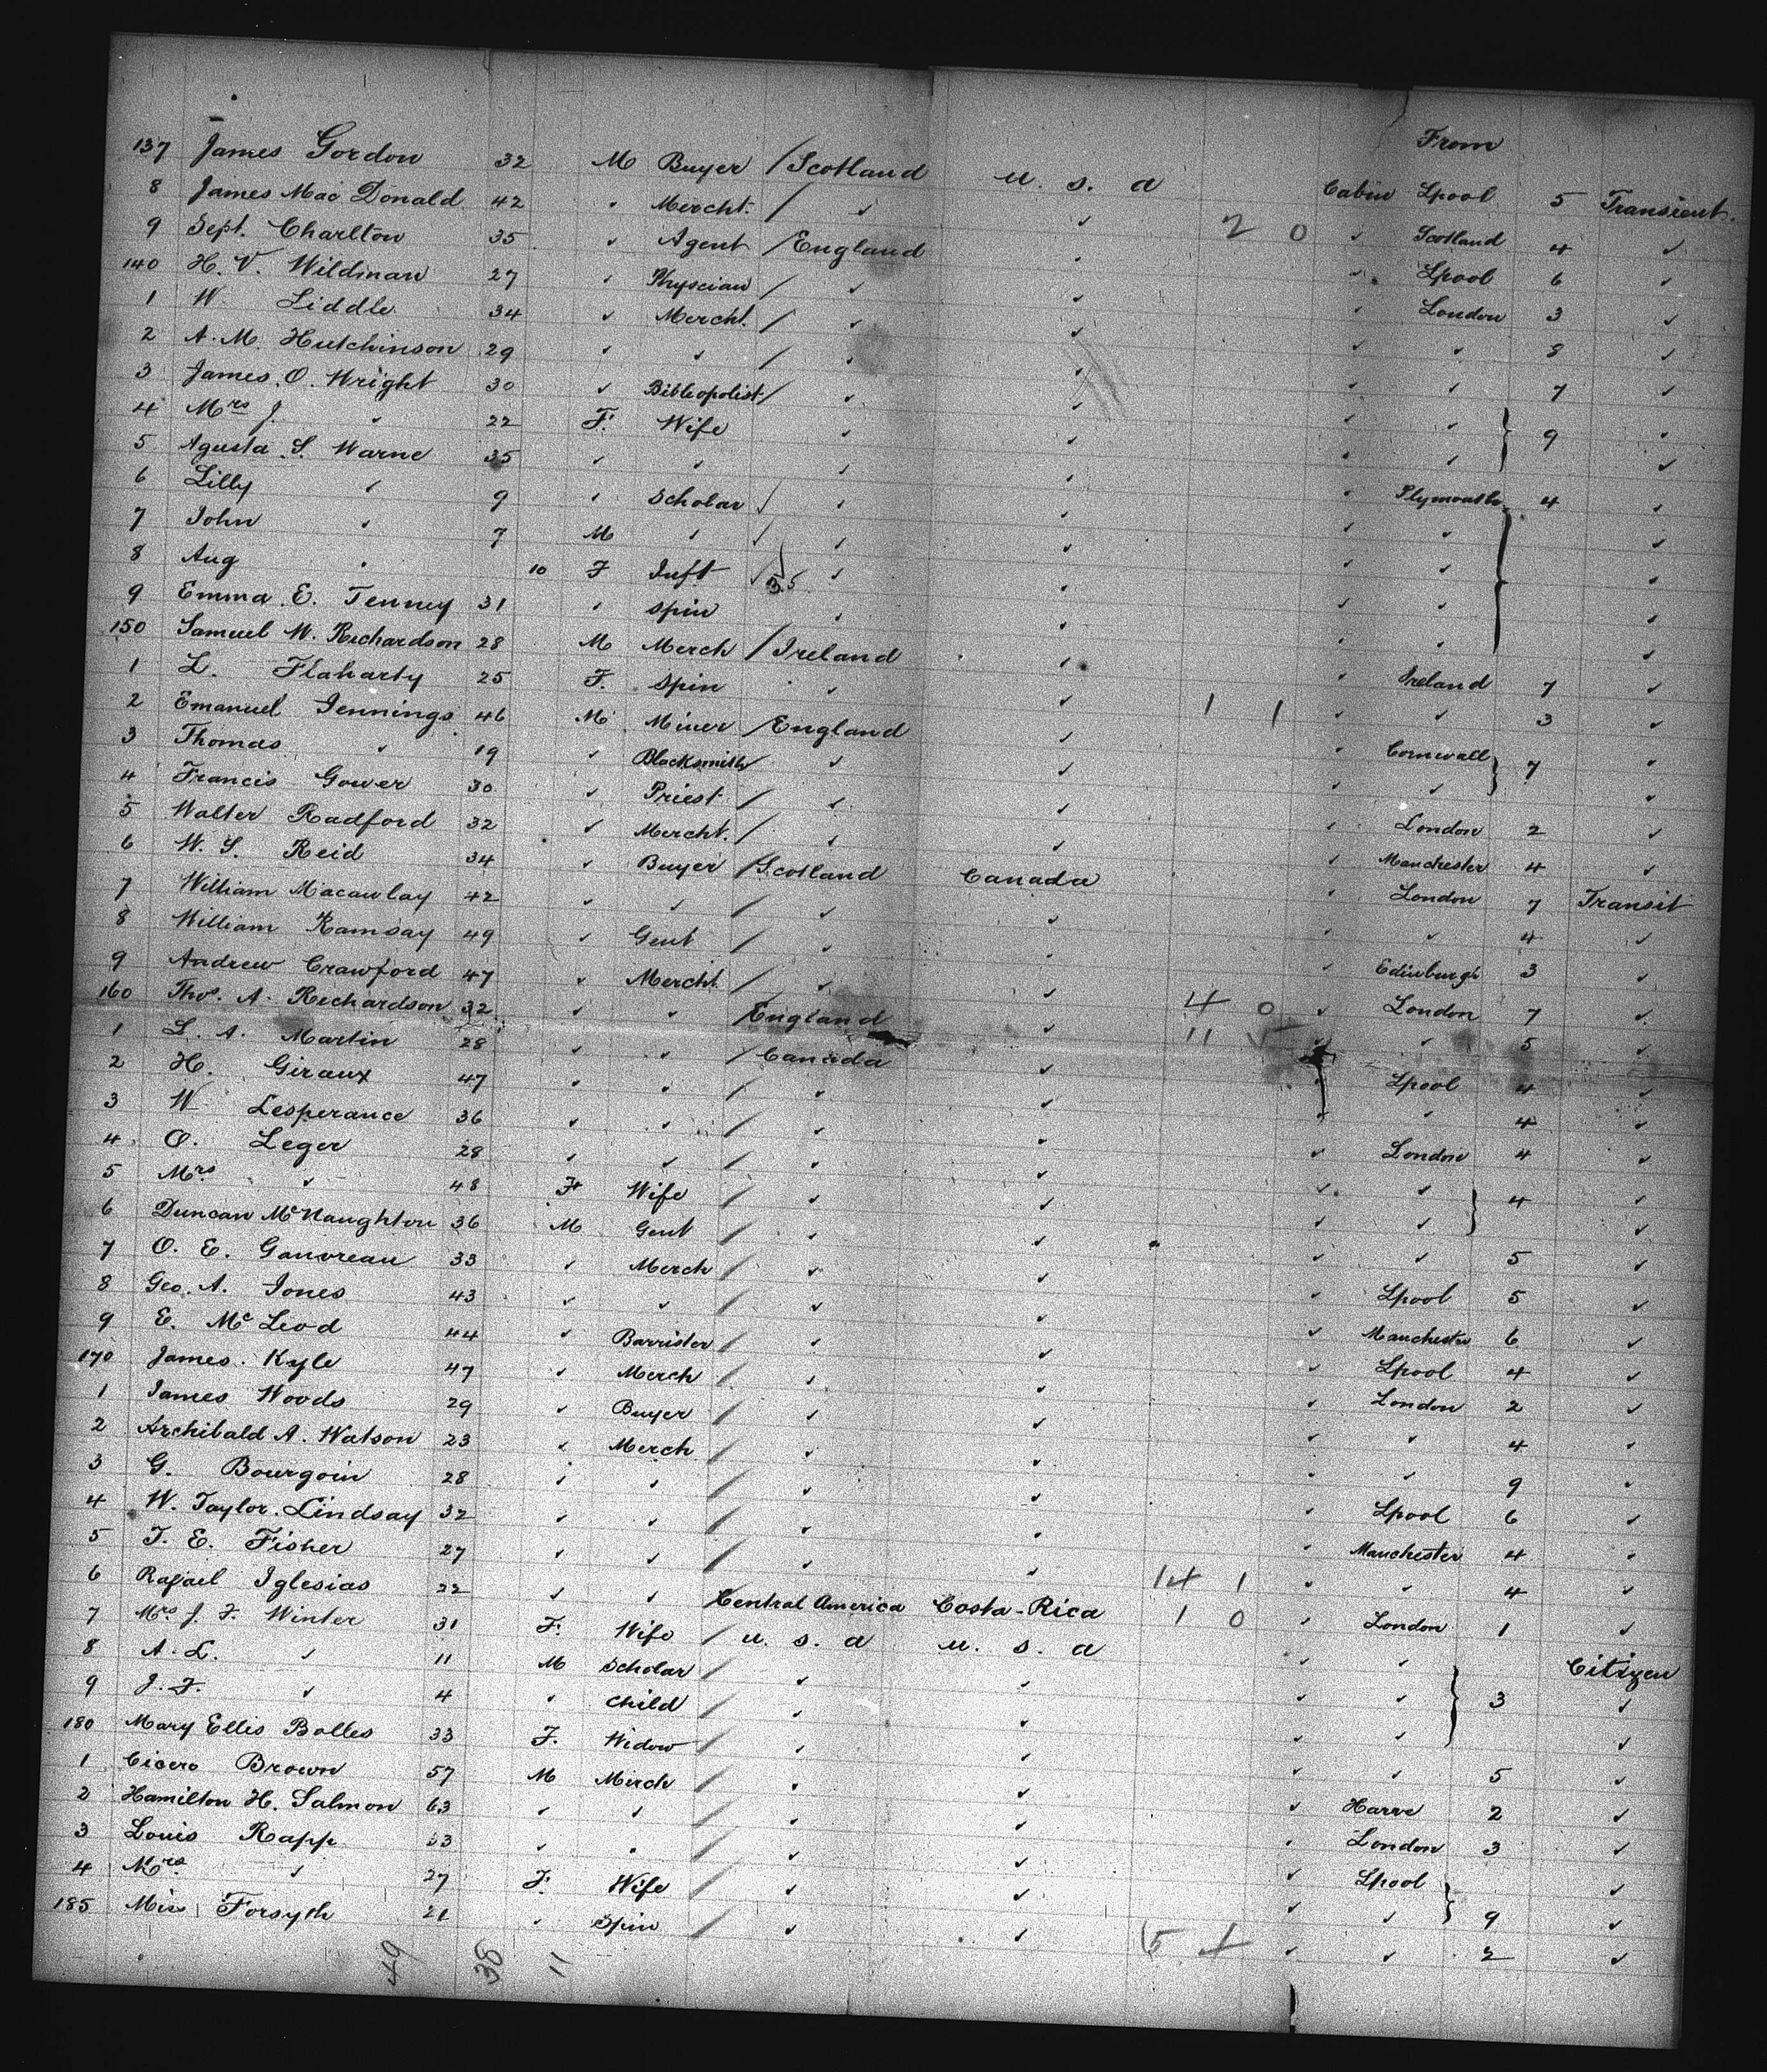 From
137 James Gordon 32 M Buyer / Scotland u. s. a Cabin Lpool 5 Transient.
8 James Mac Donald 42 ✓ Mercht. / ✓ ✓ 2 0 ✓ Scotland 4 ✓
9 Sept. Charlton 35 ✓ Agent / England ✓ ✓ Lpool 6 ✓
140 H. V. Wildman 27 ✓ Physcian / ✓ ✓ ✓ London 3 ✓
1 W Liddle 34 ✓ Mercht. / ✓ ✓ ✓ ✓ 8 ✓
2 A. M. Hutchinson 29 ✓ ✓ / ✓ ✓ ✓ ✓ 7 ✓
3 James. O. Wright 30 ✓ Bibleopolist / ✓ ✓ ✓ ✓ } 9 ✓
4 Mrs J. ✓ 22 F. Wife ✓ ✓ ✓ ✓ ✓
5 Agusta. S. Warne 35 ✓ ✓ ✓ ✓ ✓ Plymouth 4 ✓
6 Lilly ✓ 9 ✓ Scholar ✓ ✓ ✓ ✓ ✓ ✓
7 John ✓ 7 M ✓ ✓ ✓ ✓ ✓ ✓ ✓
8 Aug ✓ 10 F Inft ✓ 35 ✓ ✓ ✓ ✓ ✓
9 Emma. E. Tenney 31 ✓ Spin ✓ ✓ ✓ ✓ ✓
150 Samuel W. Richardson 28 M Merch / Ireland ✓ ✓ Ireland 7 ✓
1 L. Flaharty 25 F. Spin ✓ ✓ 1 1 ✓ ✓ 3 ✓
2 Emanuel Jennings 46 M Miner / England ✓ ✓ Cornwall } 7 ✓
3 Thomas ✓ 19 ✓ Blacksmith ✓ ✓ ✓ ✓ ✓
4 Francis Gower 30 ✓ Priest / ✓ ✓ ✓ London 2 ✓
5 Walter Radford 32 ✓ Mercht. / ✓ ✓ ✓ Manchester 4 ✓
6 W. S. Reid 34 ✓ Buyer / Scotland Canada ✓ London 7 Transit
7 William Macawlay 42 ✓ ✓ / ✓ ✓ ✓ ✓ 4 ✓
8 William Ramsay 49 ✓ Gent / ✓ ✓ ✓ Edinburgh 3 ✓
9 Andrew Crawford 47 ✓ Mercht. / ✓ ✓ 4 0 ✓ London 7 ✓
160 Thos. A. Richardson 32 ✓ ✓ / England ✓ 11 ✓ ✓ 5 ✓
1 L. A. Martin 28 ✓ ✓ / Canada ✓ ✓ Lpool 4 ✓
2 H. Giraux 47 ✓ ✓ / ✓ ✓ ✓ ✓ 4 ✓
3 W Lesperance 36 ✓ ✓ / ✓ ✓ ✓ London 4 ✓
4 O. Leger 28 ✓ ✓ / ✓ ✓ ✓ ✓ } 4 ✓
5 Mrs ✓ 48 F Wife / ✓ ✓ ✓ ✓ ✓
6 Duncan McNaughton 36 M Gent / ✓ ✓ ✓ ✓ 5 ✓
7 O. E. Gauvreau 33 ✓ Merch / ✓ ✓ ✓ Lpool 5 ✓
8 Geo. A. Jones 43 ✓ ✓ / ✓ ✓ ✓ Manchester 6 ✓
9 E. McLeod 44 ✓ Barrister / ✓ ✓ ✓ Lpool 4 ✓
170 James. Kyle 47 ✓ Merch / ✓ ✓ ✓ London 2 ✓
1 James Woods 29 ✓ Buyer / ✓ ✓ ✓ ✓ 4 ✓
2 Archibald A. Watson 23 ✓ Merch / ✓ ✓ ✓ ✓ 9 ✓
3 G. Bourgoin 28 ✓ ✓ / ✓ ✓ ✓ Lpool 6 ✓
4 W. Taylor. Lindsay 32 ✓ ✓ / ✓ ✓ ✓ Manchester 4 ✓
5 T. E. Fisher 27 ✓ ✓ / ✓ ✓ 14 1 ✓ ✓ 4 ✓
6 Rafael Iglesias 22 ✓ ✓ Central America Costa-Rica 1 0 ✓ London 1 ✓
7 Mrs J. F. Winter 31 F. Wife / u. s. a u. s. a ✓ ✓ } 3 Citizen
8 A. L. ✓ 11 M Scholar / ✓ ✓ ✓ ✓ ✓
9 J. F. ✓ 4 ✓ Child / ✓ ✓ ✓ ✓ ✓
180 Mary Ellis Bolles 33 F. Widow / ✓ ✓ ✓ ✓ 5 ✓
1 Cicero Brown 57 M Merch / ✓ ✓ ✓ Harve 2 ✓
2 Hamilton H. Salmon 63 ✓ ✓ / ✓ ✓ ✓ London 3 ✓
3 Louis Rapp 33 ✓ ✓ / ✓ ✓ ✓ Lpool } 9 ✓
4 Mrs ✓ 27 F. Wife / ✓ ✓ ✓ ✓ ✓
185 Miss Forsyth 21 ✓ Spin / ✓ ✓ 5 4 ✓ ✓ 2 ✓
49 38 11